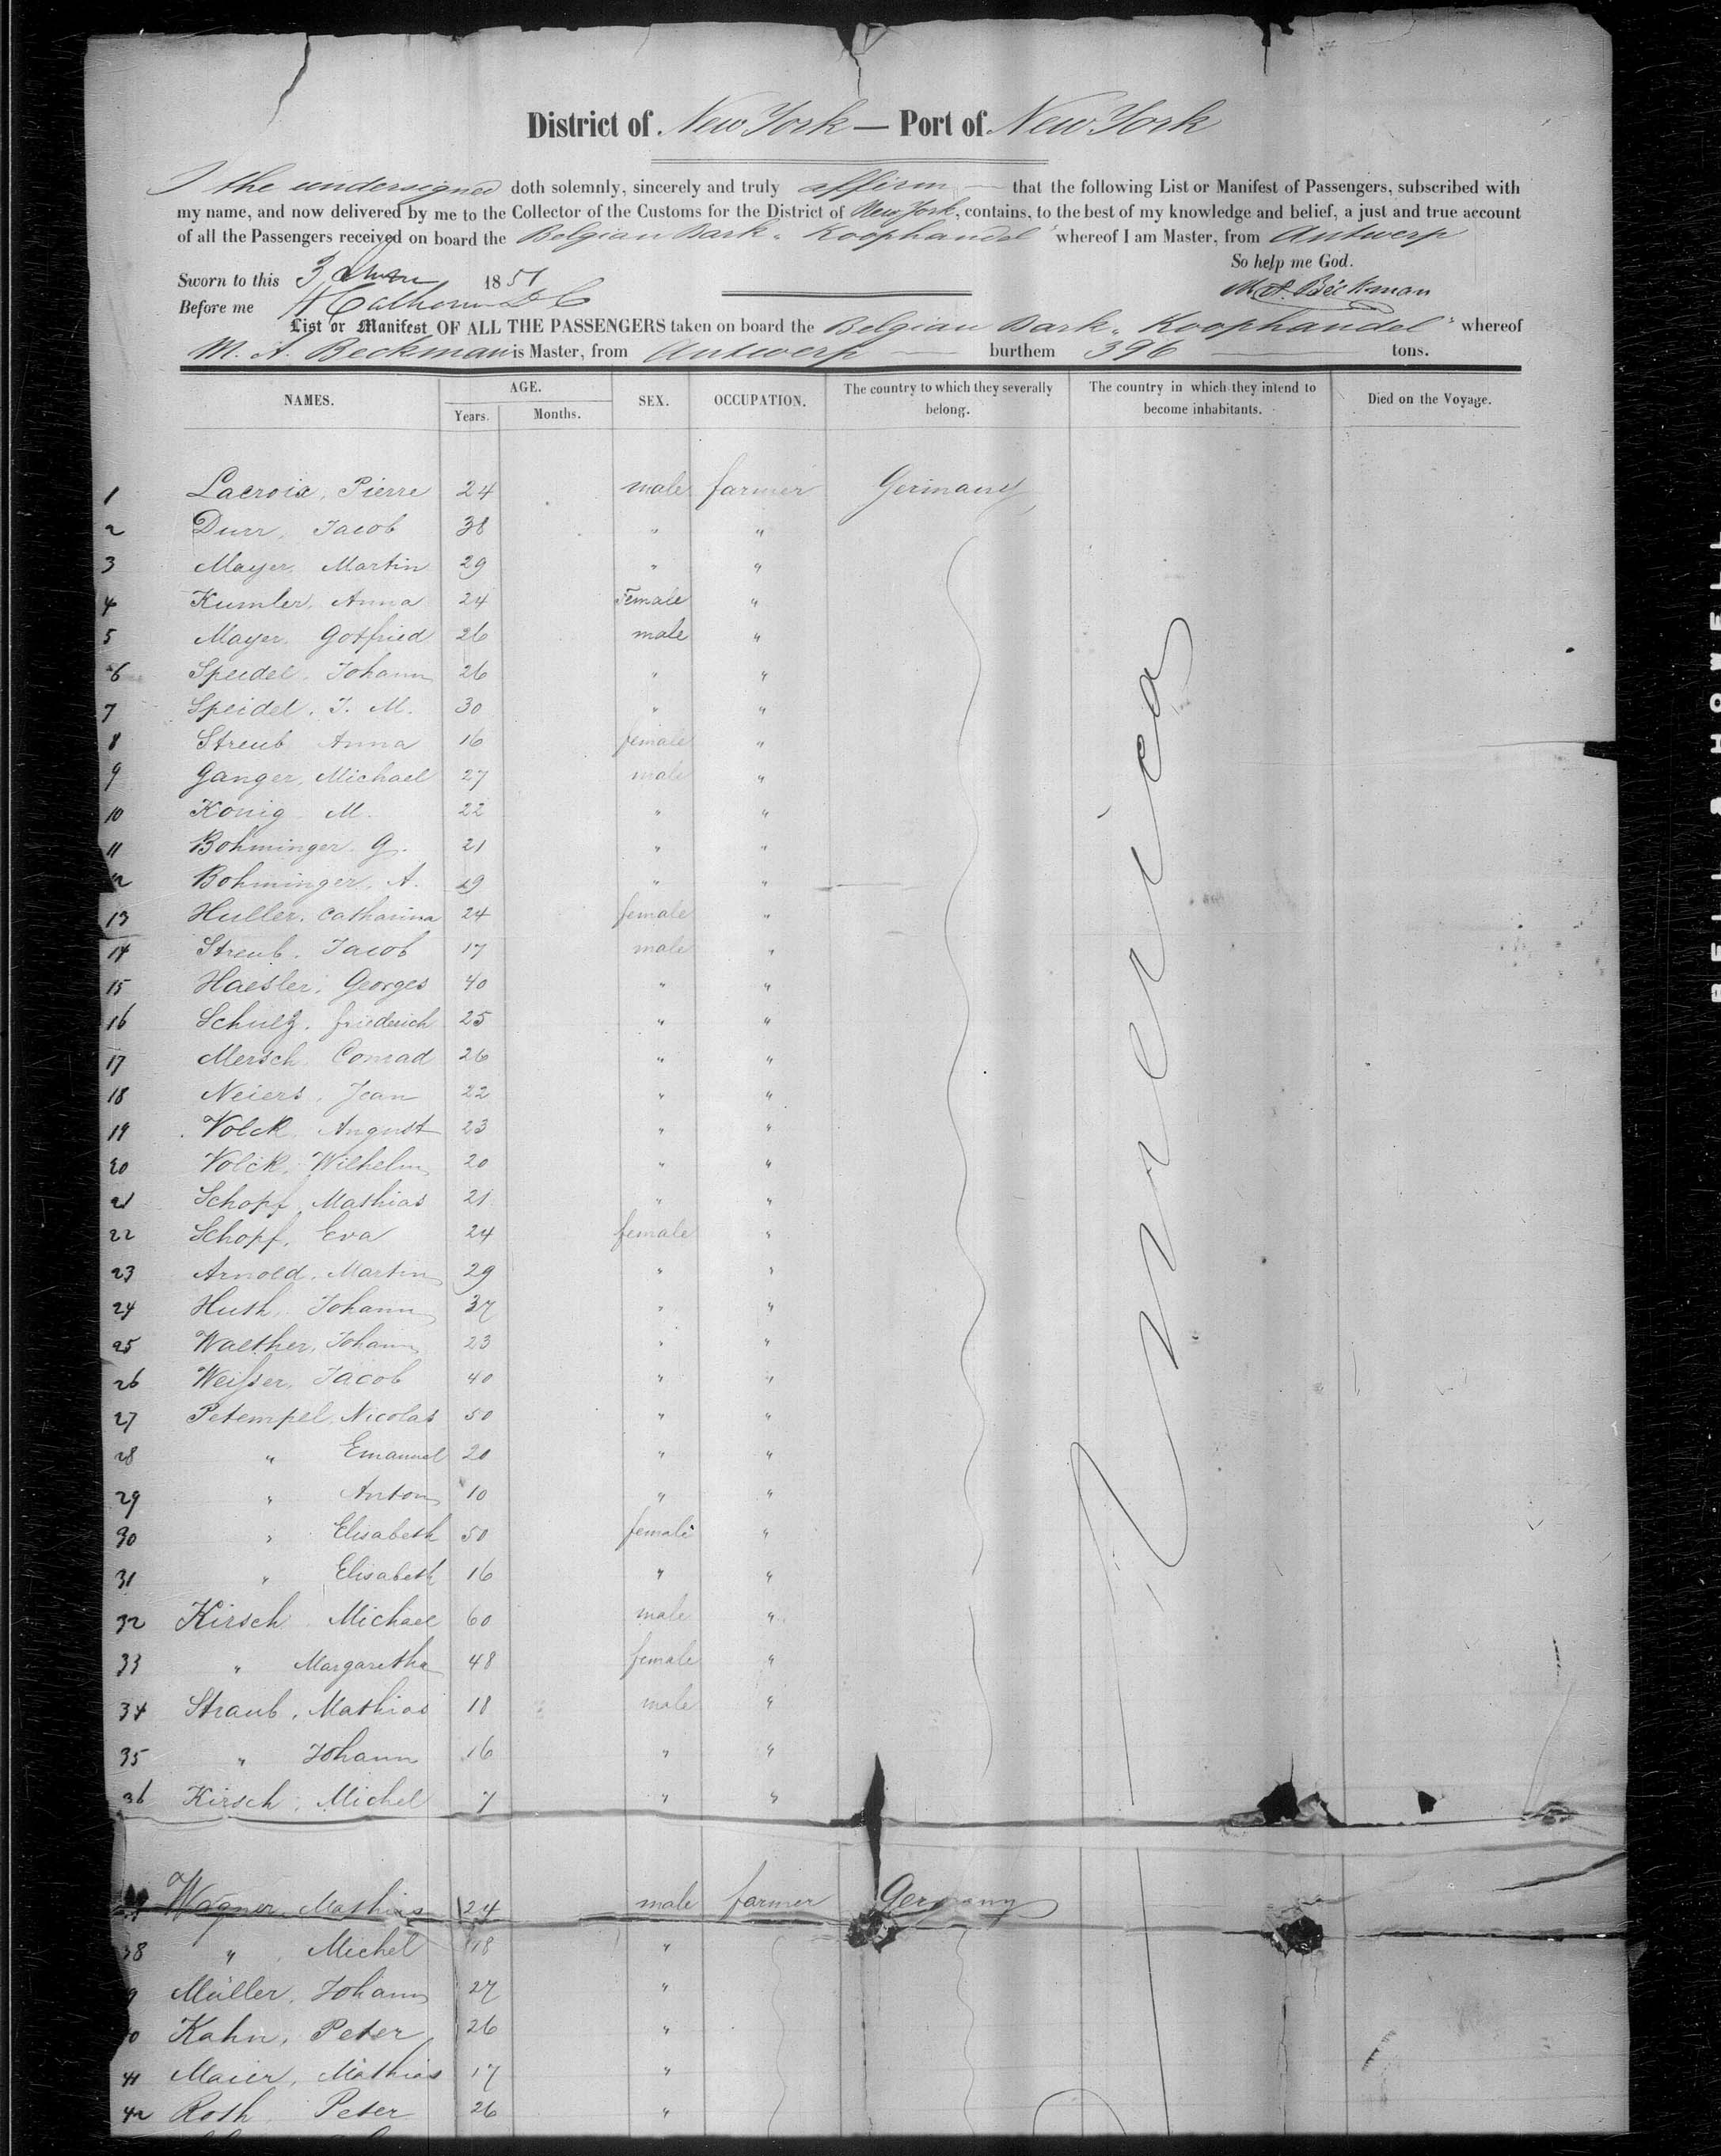 District of New York — Port of New York
I the undersigned doth solemnly, sincerely and truly affirm — that the following List or Manifest of Passengers, subscribed with
my name, and now delivered by me to the Collector of the Customs for the District of New York, contains, to the best of my knowledge and belief, a just and true account
of all the Passengers received on board the Belgian Bark "Koophandel" whereof I am Master, from Antwerp
So help me God.
Sworn to this 3 1851
M. A. Beckman
Before me
List or Manifest OF ALL THE PASSENGERS taken on board the Belgian Bark "Koophandel" whereof
M. A. Beckman is Master, from Antwerp — burthem 396 — tons.
NAMES. AGE. SEX. OCCUPATION. The country to which they severally belong. The country in which they intend to become inhabitants. Died on the Voyage.
Years. Months.
1 Lacroix, Pierre 24 male farmer Germany
2 Durr, Jacob 38 " "
3 Mayer, Martin 29 " "
4 Kumler, Anna 24 Female "
5 Mayer, Gotfried 26 male "
6 Speidel, Johann 26 " "
7 Speidel, J. M. 30 " "
8 Streub Anna 16 female "
9 Ganger, Michael 27 male "
10 Konig M. 22 " "
11 Bohminger G. 21 " "
12 Bohminger, A. 29 " "
13 Huller, Catharina 24 female "
14 Streub, Jacob 17 male "
15 Haesler, Georges 40 " "
16 Schulz, friederich 25 " "
17 Mersch Conrad 26 " "
18 Neiers, Jean 22 " "
19 Volck, August 23 " "
20 Volck, Wilhelm 20 " "
21 Schopf, Mathias 21 " "
22 Schopf, Eva 24 female "
23 Arnold, Martin 29 " "
24 Huth, Johann 37 " "
25 Walther, Johann 23 " "
26 Weisser, Jacob 40 " "
27 Petempel, Nicolas 50 " "
28 " Emanuel 20 " "
29 " Anton 10 " "
30 " Elisabeth 50 female "
31 " Elisabeth 16 " "
32 Kirsch Michael 60 male "
33 " Margaretha 48 female "
34 Straub, Mathias 18 male "
35 " Johann 16 " "
36 Kirsch, Michel 7 " "
America
Wagner, Mathias 24 male farmer Germany
38 " Michel 18 "
9 Müller, Johann 27 "
0 Kahn, Peter 26 "
41 Maier, Mathias 17 "
42 Roth Peter 26 "